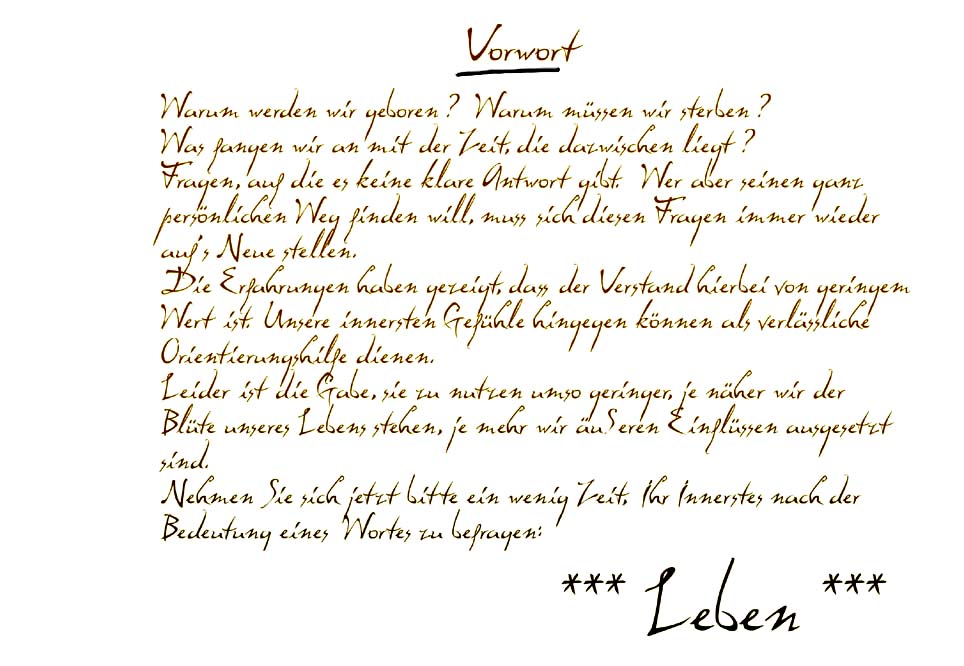 Vorwort
Warum werden wir geboren? Warum müssen wir sterben?
Was fangen wir an mit der Zeit, die dazwischen liegt?
Fragen, auf die es keine klare Antwort gibt. Wer aber seinen ganz
persönlichen Weg finden will, muss sich diesen Fragen immer wieder
auf's Neue stellen.
Die Erfahrungen haben gezeigt, dass der Verstand hierbei von geringem
Wert ist. Unsere innersten Gefühle hingegen können als verlässliche
Orientierungshilfe dienen.
Leider ist die Gabe, sie zu nutzen umso geringer, je näher wir der
Blüte unseres Lebens stehen, je mehr wir äußeren Einflüssen ausgesetzt
sind.
Nehmen Sie sich jetzt bitte ein wenig Zeit, Ihr Innerstes nach der
Bedeutung eines Wortes zu befragen:
*** Leben ***